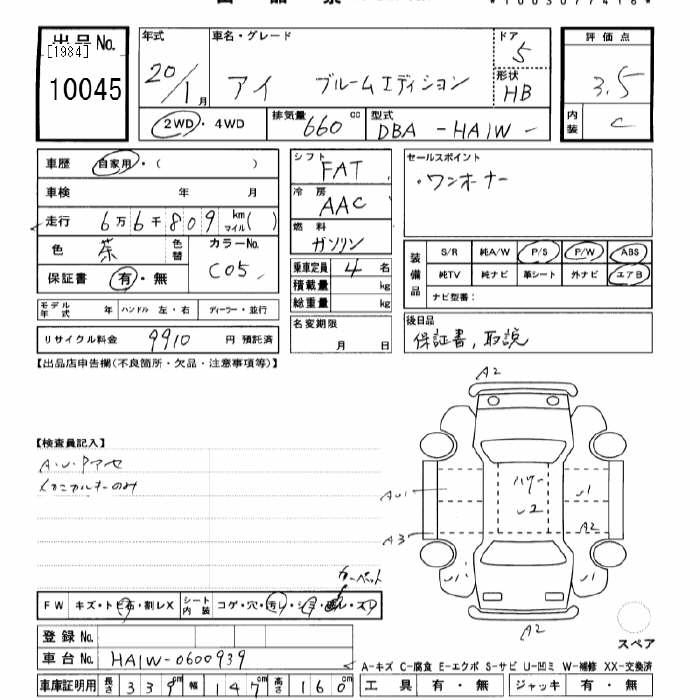 *1003077416*
出品No. [1984] 10045
年式 20/1月
車名・グレード アイ ブルームエディション
ドア 5
形状 HB
2WD・4WD
排気量 660cc
型式 DBA-HA1W-
評価点 3.5
内装 C
車歴 自家用・( )
車検 年 月
走行 6万6千809km マイル( )
色 茶 色替
カラーNo. C05
保証書 有・無
モデル年式 年 ハンドル 左・右 ディーラー・並行
リサイクル料金 9910円 預託済
シフト FAT
冷房 AAC
燃料 ガソリン
乗車定員 4名
積載量 kg
総重量 kg
名変期限 月 日
セールスポイント
・ワンオーナー
装備品 S/R 純A/W P/S P/W ABS
純TV 純ナビ 革シート 外ナビ エアB
ナビ型番:
後日品
保証書,取説
【出品店申告欄(不良箇所・欠品・注意事項等)】
【検査員記入】
A・U・Pアセ
メカニカルキーのみ
A2
A3
A2
A2
カーペット
FW キズ・トビ石・割レX シート内装 コゲ・穴・汚レ・シミ
登録No.
車台No. HA1W-0600939
車庫証明用 長さ 339cm 幅 147cm 高さ 160cm
スペア
A-キズ C-腐食 E-エクボ S-サビ U-凹ミ W-補修 XX-交換済
工具 有・無 ジャッキ 有・無